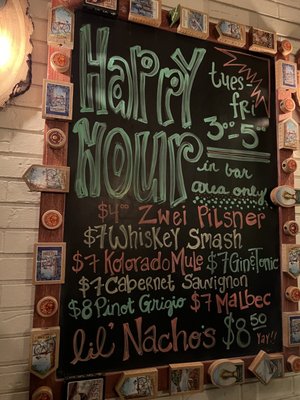 Happy Hour
tues-
fri
3:00-5:00
in bar
area only
$4.00 Zwei Pilsner
$7 Whiskey Smash
$7 Kolorado Mule $7 Gin & Tonic
$7 Cabernet Sauvignon
$8 Pinot Grigio $7 Malbec
lil' Nacho's $8.50
Yay!!